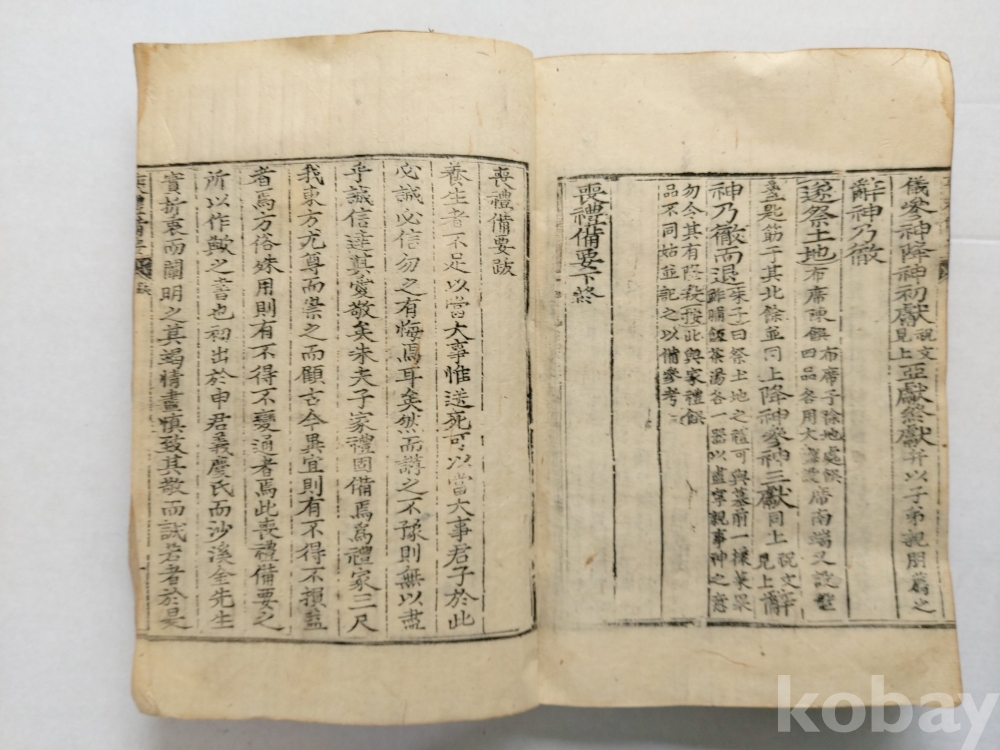 儀參神降神初獻祝文見上亞獻終獻并以子弟親朋爲之
辭神乃徹
遂祭土地布席陳饌布席子徐地處饌四品各用大盤設席南端又設盞
盞匙筯于其北餘並同上降神參神三獻同上祝文見上辭
神乃徹而退朱子曰祭土地之禮可與墓前一樣菜果鮓脯飯茶湯各一器以盡寧親事神之意
勿令其有隆殺按此與家禮饌品不同姑並記之以備參考
喪禮備要下終
喪禮備要跋
養生者不足以當大事惟送死可以當大事君子於此
必誠必信勿之有悔焉耳矣然而講之不豫則無以盡
乎誠信達其愛敬矣朱夫子家禮固備焉爲禮家三尺
我東方尤尊而崇之而顧古今異宜則有不得不損益
者焉方俗殊用則有不得不變通者焉此喪禮備要之
所以作歟之書也初出於申君義慶氏而沙溪金先生
實折衷而闡明之其竭情盡愼致其敬而誠若者於是
kobay